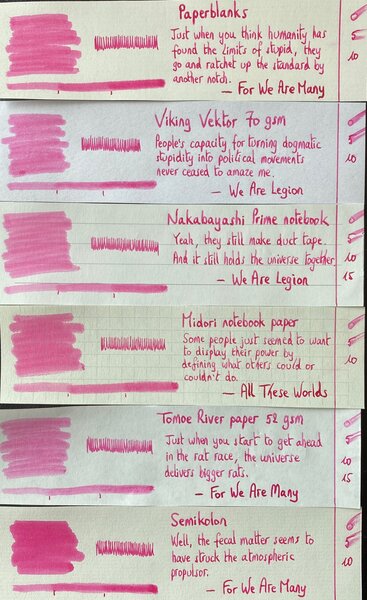 Paperblanks
Just when you think humanity has
found the limits of stupid, they
go and ratchet up the standard by
another notch.
— For We Are Many
5
10
Viking Vektor 70 gsm
People's capacity for turning dogmatic
stupidity into political movements
never ceased to amaze me.
— We Are Legion
5
10
Nakabayashi Prime notebook
Yeah, they still make duct tape.
And it still holds the universe together.
— We Are Legion
5
10
15
Midori notebook paper
Some people just seemed to want
to display their power by
defining what others could or
couldn't do.
— All These Worlds
5
10
Tomoe River paper 52 gsm
Just when you start to get ahead
in the rat race, the universe
delivers bigger rats.
— For We Are Many
5
10
15
Semikolon
Well, the fecal matter seems to
have struck the atmospheric
propulsor.
— For We Are Many
5
10